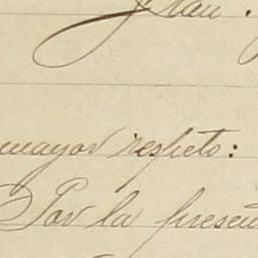 mayor respeto:
Por la presen